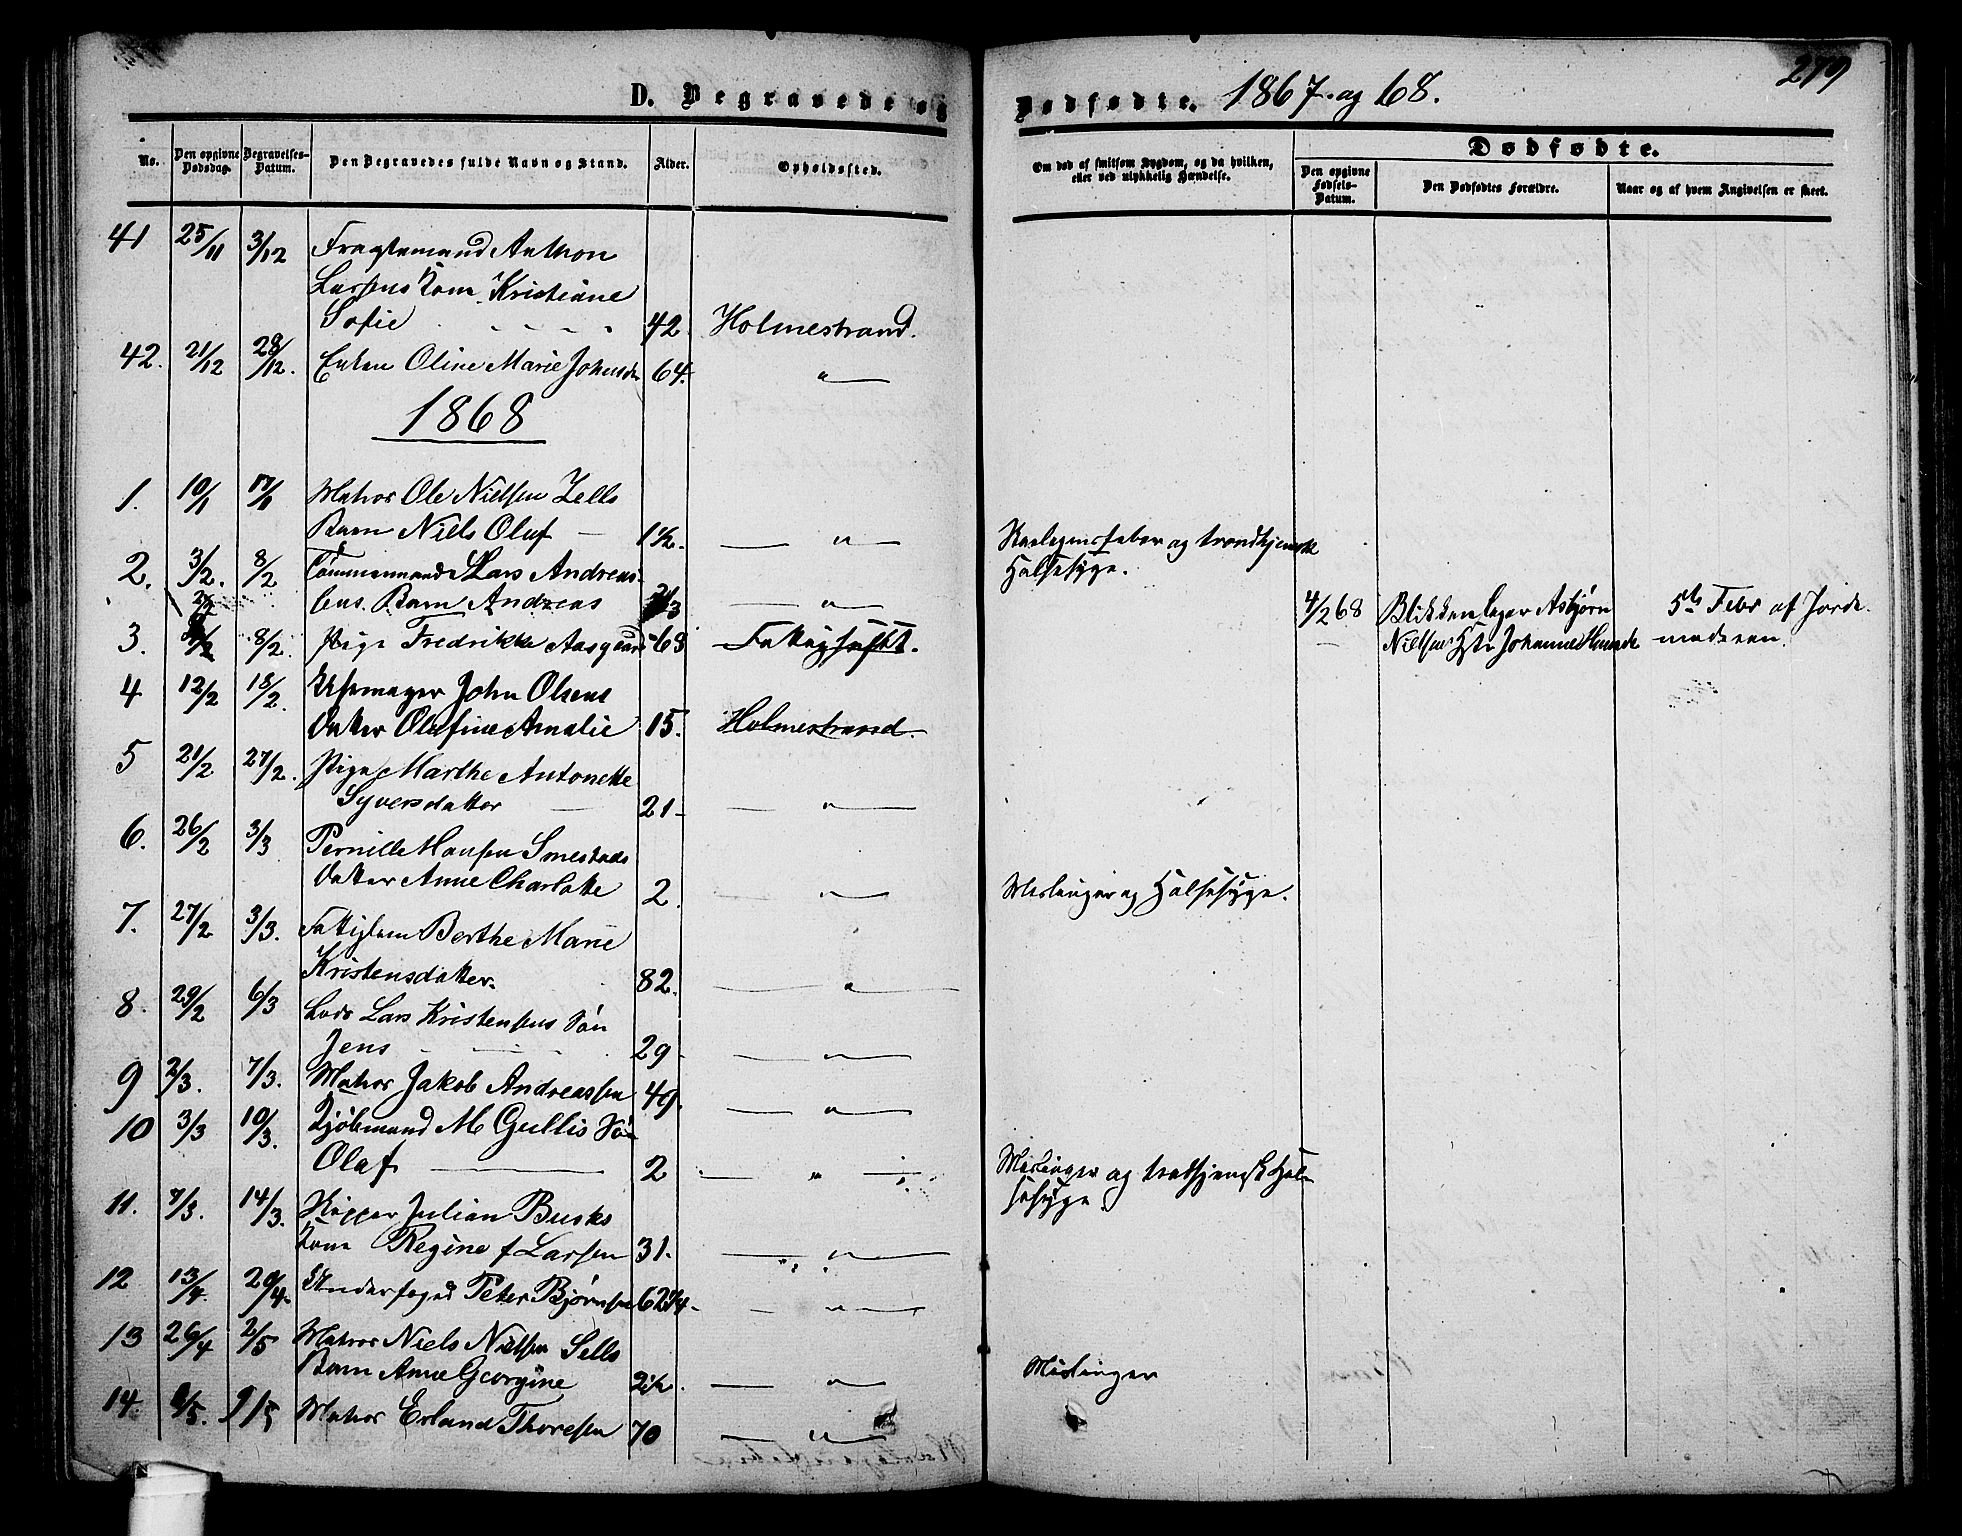 D. Begravede og
Dødfødte. 1867 og 68.
279
No.
Den opgivne Dødsdag.
Begravelses-Datum.
Den Begravedes fulde Navn og Stand.
Alder.
Opholdssted.
Om død af smitsom Sygdom, og da hvilken, eller ved ulykkelig Hændelse.
Dødfødte.
Den opgivne Fødsels-Datum.
Den Dødfødtes Forældre.
Naar og af hvem Angivelsen er skeet.
41 25/11 3/12 Fragtemand Anthon
Larsens Kone Kristiane
Sofie 42 Holmestrand.
42. 21/12 28/12. Enken Oline Marie Johnsda 64. "
1868
1. 10/1 17/1 Matros Ole Nielsen Zells
Barn Niels Oluf 1 1/2. " Skarlagensfeber og trondhjemsk
Halssyge.
2. 3/2. 8/2 Tømmermand Lars Andrea-
sens Barn Andreas "
4/2 68 Blikkenslager Asbjørn 5te Febr af Jorde-
Nielsen Hstr Johanne moderen.
3. 8/2. Pige Fredrikke Aasgaard 63 Fattigstift.
4 12/2 18/2. Uhrmager John Olsens
Datter Olefine Amalie 15. Holmestrand.
5 21/2 27/2. Pige Marthe Antonette
Syversdatter 21 "
6. 26/2 3/3 Pernille Hansen Smestads
Datter Anne Charlotte 2. " Meslinger og Halssyge.
7. 27/2 3/3. Fattiglem Berthe Marie
Kristensdatter. 82. "
8. 29/2 6/3 Lods Lars Kristensens Søn
Jens 29 "
9 2/3. 7/3. Matros Jakob Andreassen 49. "
10 3/3 10/3. Kjøbmand M Gullis Søn
Olaf 2 " Meslinger og trothjemsk Hal-
sesyge.
11. 7/3. 14/3. Skipper Julian Busks
Kone Regine f Larsen 31. "
12 13/4. 20/4. Underfoged Peter Bjørnsen 62 3/4. "
13 26/4 2/5 Matros Niels Nielsen Sells
Barn Anne Georgine 2 1/2. " Meslinger
14. /5. 9/5 Matros Erland Thoresen 70 "